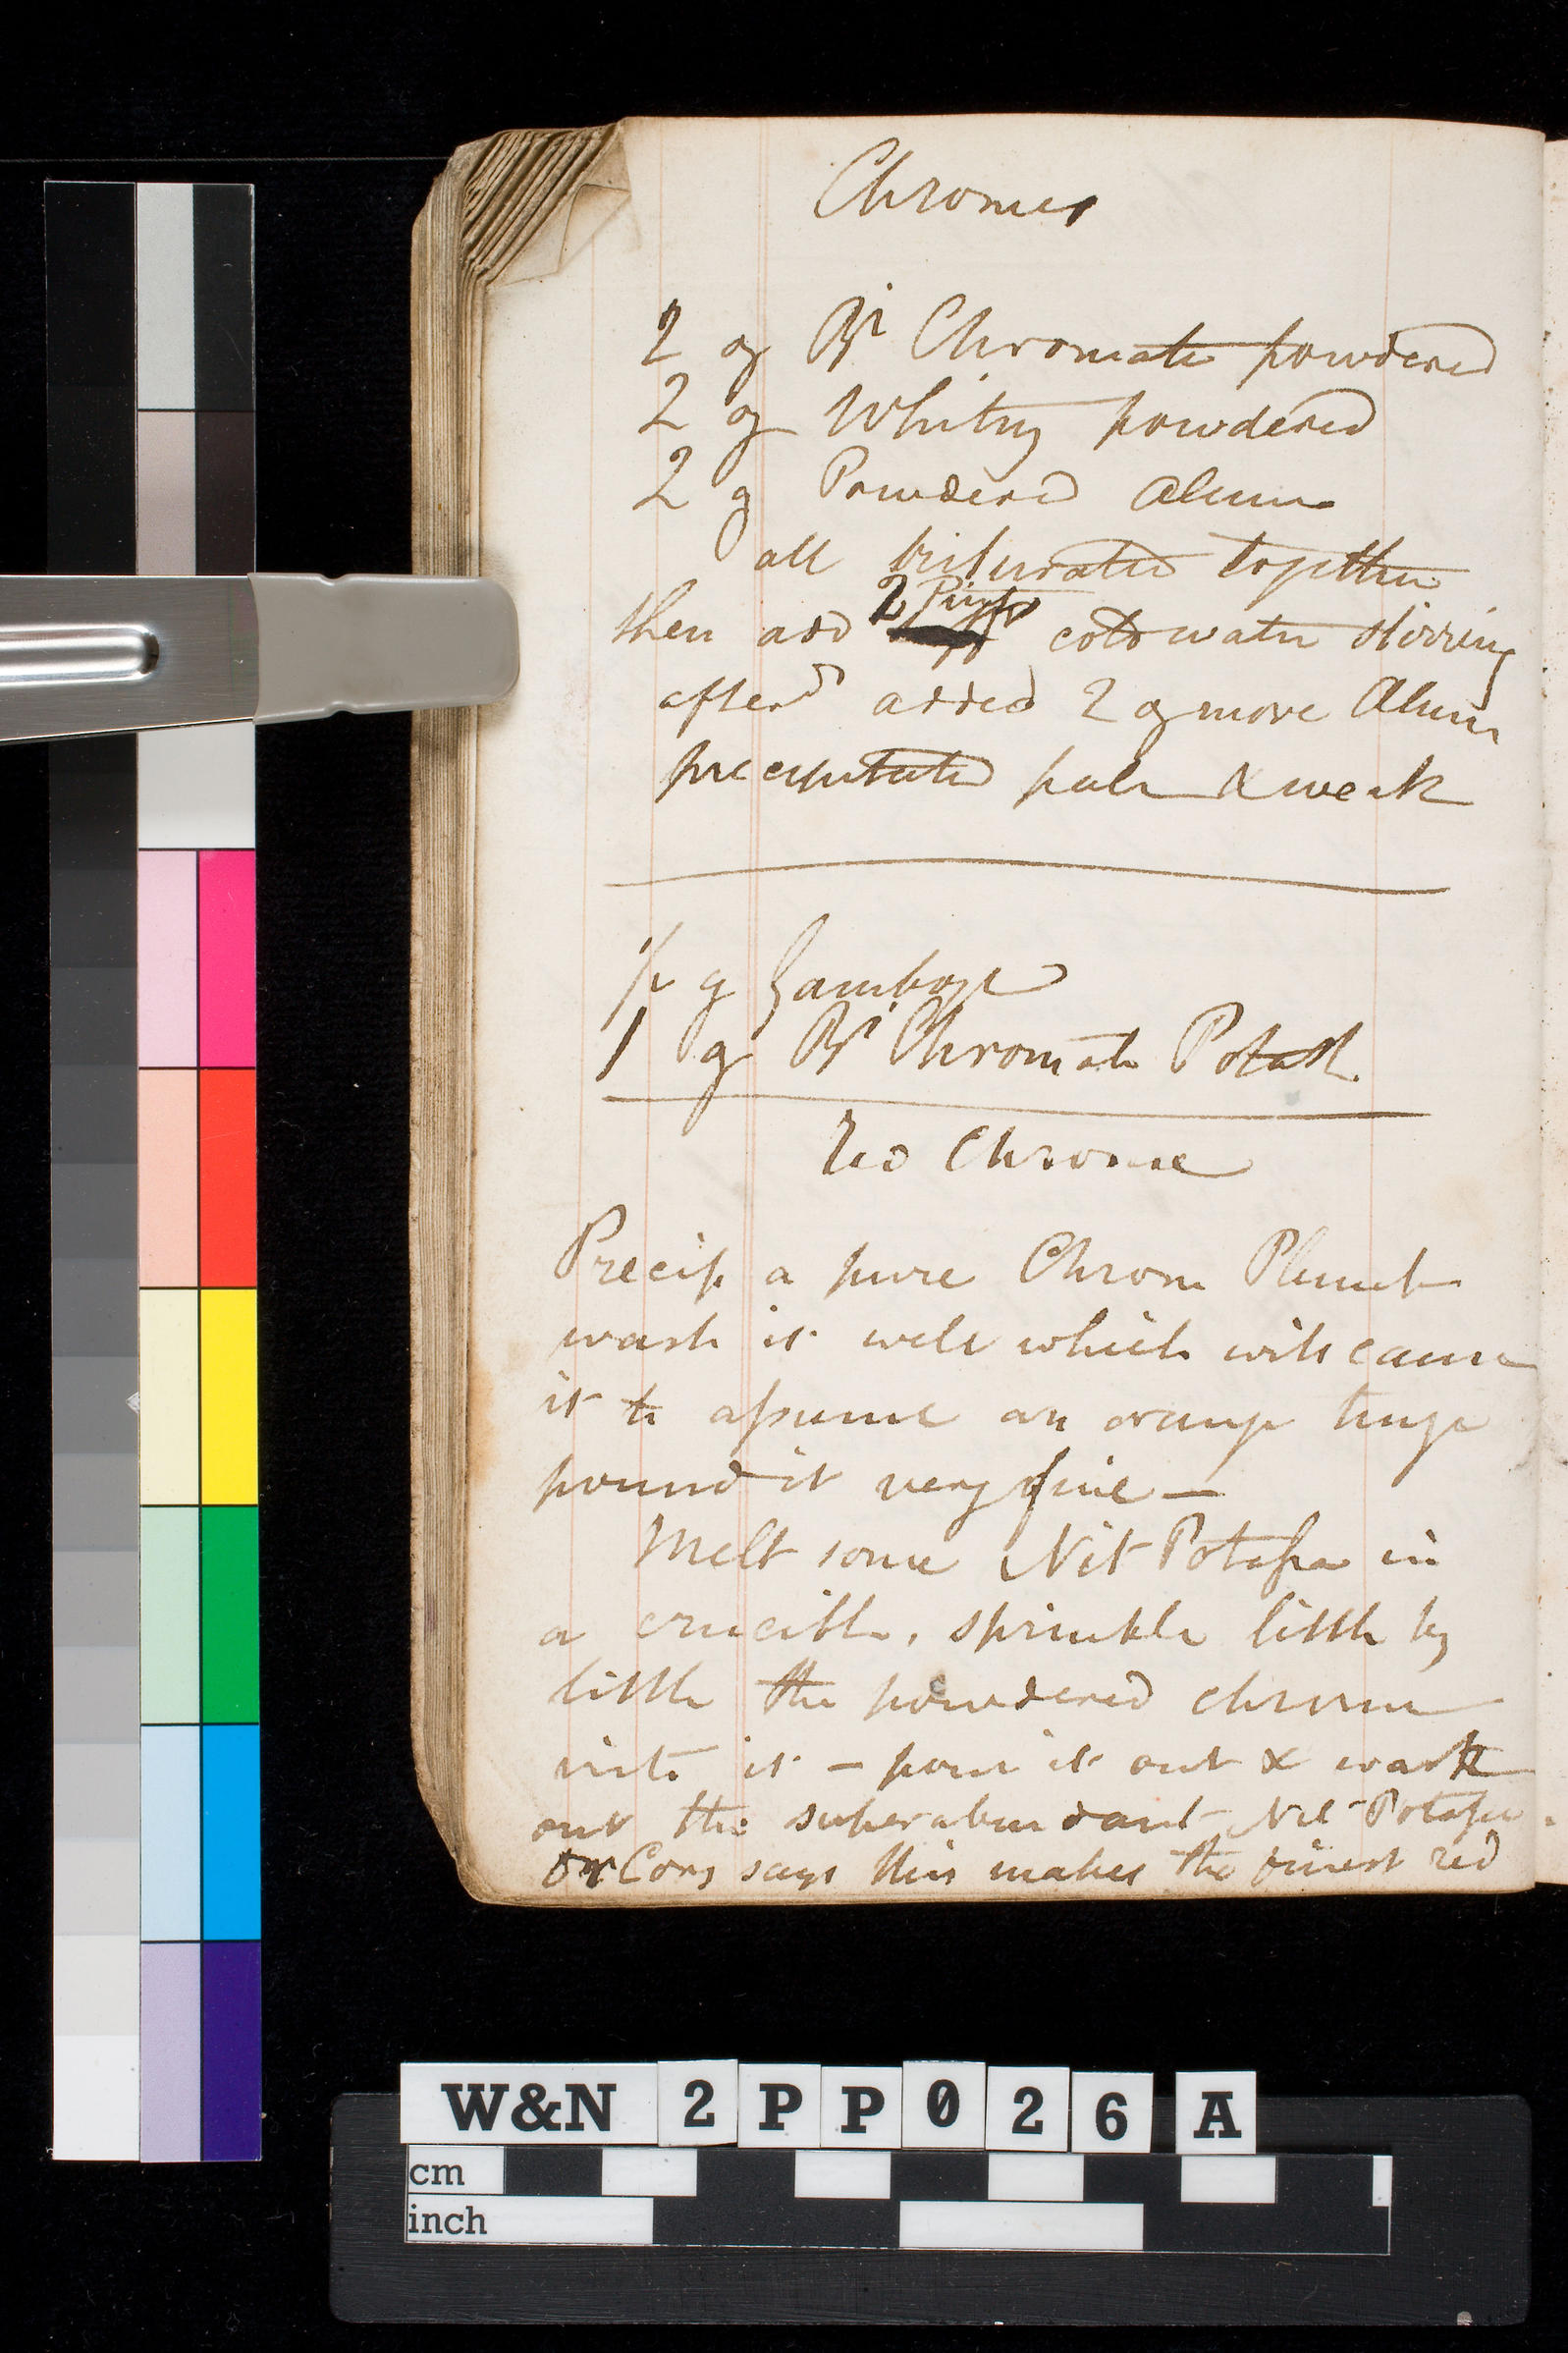 Chromes
2 oz Bi Chromate powdered
2 oz Whiting powdered
2 oz Powdered Alum
all triturated together
then add 2 Pints cold water stirring
afterd added 2 oz more Alum
precipitated pale & weak
½ oz Gamboge
1 oz Bi Chromate Potash
Red Chrome
Precip a pure Chrom Plumb
wash it well which will cause
it to assume an orange tinge
pound it very fine —
Melt some Nit Potassa in
a crucible, sprinkle little by
little the powdered chrome
into it — pour it out & wash
out the superabundant Nit Potassa.
Dr Cory says this makes the finest red
W&N 2PP026 A
cm
inch